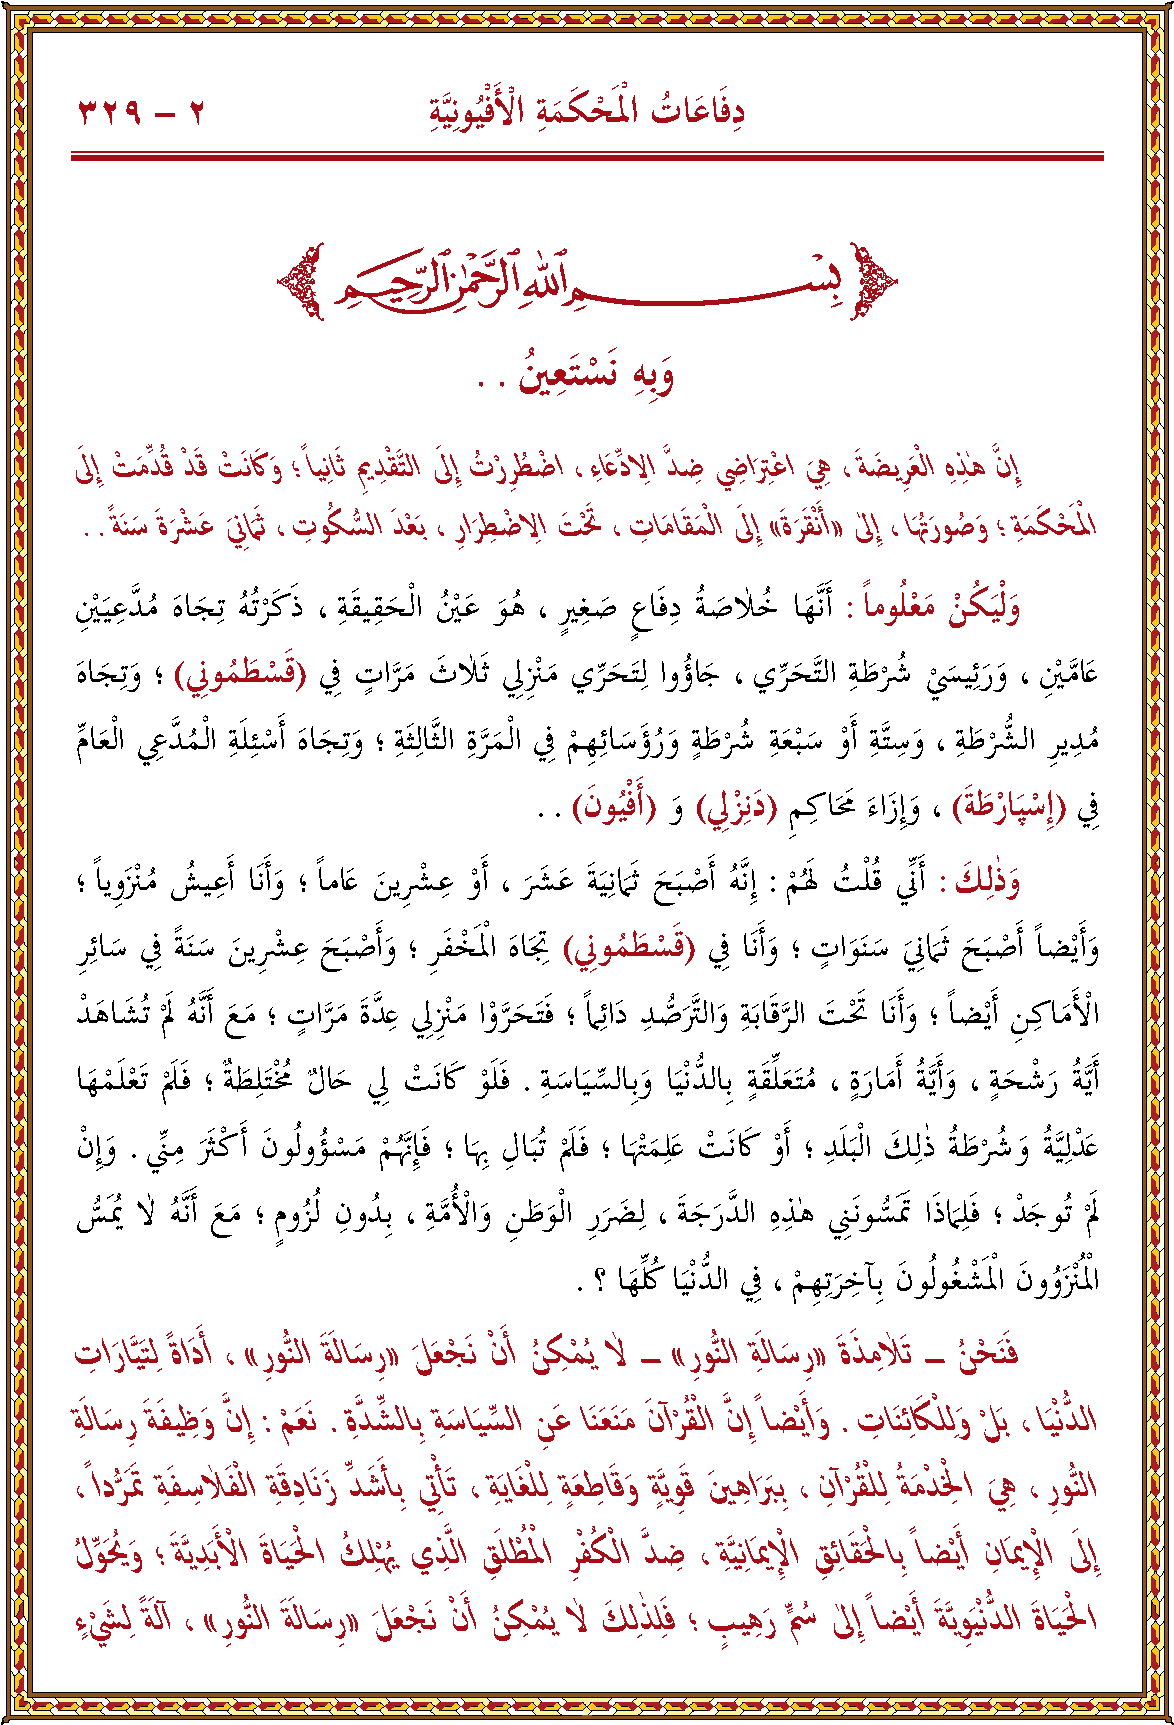 دِفَاعَاتُ الْمَحْكَمَةِ الْأَفْيُونِيَّةِ
٢ – ٣٢٩
بِسْمِ اللهِ الرَّحْمٰنِ الرَّحِيمِ
وَبِهِ نَسْتَعِينُ . .
إِنَّ هٰذِهِ الْعَرِيضَةَ ، هِيَ اعْتِرَاضِي ضِدَّ الِادِّعَاءِ ، اضْطُرِرْتُ إِلَى التَّقْدِيمِ ثَانِياً ؛ وَكَانَتْ قَدْ قُدِّمَتْ إِلَى
الْمَحْكَمَةِ ؛ وَصُورَتُهَا ، إِلٰى «أَنْقَرَةَ» إِلَى الْمَقَامَاتِ ، تَحْتَ الِاضْطِرَارِ ، بَعْدَ السُّكُوتِ ، ثَمَانِيَ عَشْرَةَ سَنَةً . .
وَلْيَكُنْ مَعْلُوماً : أَنَّهَا خُلَاصَةُ دِفَاعٍ صَغِيرٍ ، هُوَ عَيْنُ الْحَقِيقَةِ ، ذَكَرْتُهُ تِجَاهَ مُدَّعِيَيْنِ
عَامَّيْنِ ، وَرَئِيسَيْ شُرْطَةِ التَّحَرِّي ، جَاؤُوا لِتَحَرِّي مَنْزِلِي ثَلَاثَ مَرَّاتٍ فِي (قَسْطَمُونِي) ؛ وَتِجَاهَ
مُدِيرِ الشُّرْطَةِ ، وَسِتَّةِ أَوْ سَبْعَةِ شُرْطَةٍ وَرُؤَسَائِهِمْ فِي الْمَرَّةِ الثَّالِثَةِ ؛ وَتِجَاهَ أَسْئِلَةِ الْمُدَّعِي الْعَامِّ
فِي (إِسْپَارْطَةَ) ، وَإِزَاءَ مَحَاكِمِ (دَنِزْلِي) وَ (أَفْيُونَ) . .
وَذٰلِكَ : أَنِّي قُلْتُ لَهُمْ : إِنَّهُ أَصْبَحَ ثَمَانِيَةَ عَشَرَ ، أَوْ عِشْرِينَ عَاماً ؛ وَأَنَا أَعِيشُ مُنْزَوِياً ؛
وَأَيْضاً أَصْبَحَ ثَمَانِيَ سَنَوَاتٍ ؛ وَأَنَا فِي (قَسْطَمُونِي) تِجَاهَ الْمَخْفَرِ ؛ وَأَصْبَحَ عِشْرِينَ سَنَةً فِي سَائِرِ
الْأَمَاكِنِ أَيْضاً ؛ وَأَنَا تَحْتَ الرَّقَابَةِ وَالتَّرَصُّدِ دَائِماً ؛ فَتَحَرَّوْا مَنْزِلِي عِدَّةَ مَرَّاتٍ ؛ مَعَ أَنَّهُ لَمْ تُشَاهَدْ
أَيَّةُ رَشْحَةٍ ، وَأَيَّةُ أَمَارَةٍ ، مُتَعَلِّقَةٍ بِالدُّنْيَا وَبِالسِّيَاسَةِ . فَلَوْ كَانَتْ لِي حَالٌ مُخْتَلِطَةٌ ؛ فَلَمْ تَعْلَمْهَا
عَدْلِيَّةُ وَشُرْطَةُ ذٰلِكَ الْبَلَدِ ؛ أَوْ كَانَتْ عَلِمَتْهَا ؛ فَلَمْ تُبَالِ بِهَا ؛ فَإِنَّهُمْ مَسْؤُولُونَ أَكْثَرَ مِنِّي . وَإِنْ
لَمْ تُوجَدْ ؛ فَلِمَاذَا تَمَسُّونَنِي هٰذِهِ الدَّرَجَةَ ، لِضَرَرِ الْوَطَنِ وَالْأُمَّةِ ، بِدُونِ لُزُومٍ ؛ مَعَ أَنَّهُ لَا يُمَسُّ
الْمُنْزَوُونَ الْمَشْغُولُونَ بِآخِرَتِهِمْ ، فِي الدُّنْيَا كُلِّهَا ؟ .
فَنَحْنُ – تَلَامِذَةَ «رِسَالَةِ النُّورِ» – لَا يُمْكِنُ أَنْ نَجْعَلَ «رِسَالَةَ النُّورِ» ، أَدَاةً لِتَيَّارَاتِ
الدُّنْيَا ، بَلْ وَلِلْكَائِنَاتِ . وَأَيْضاً إِنَّ الْقُرْآنَ مَنَعَنَا عَنِ السِّيَاسَةِ بِالشِّدَّةِ . نَعَمْ : إِنَّ وَظِيفَةَ رِسَالَةِ
النُّورِ ، هِيَ الْخِدْمَةُ لِلْقُرْآنِ ، بِبَرَاهِينَ قَوِيَّةٍ وَقَاطِعَةٍ لِلْغَايَةِ ، تَأْتِي بِأَشَدِّ زَنَادِقَةِ الْفَلَاسِفَةِ تَمَرُّداً ،
إِلَى الْإِيمَانِ أَيْضاً بِالْحَقَائِقِ الْإِيمَانِيَّةِ ، ضِدَّ الْكُفْرِ الْمُطْلَقِ الَّذِي يُهْلِكُ الْحَيَاةَ الْأَبَدِيَّةَ ؛ وَيُحَوِّلُ
الْحَيَاةَ الدُّنْيَوِيَّةَ أَيْضاً إِلٰى سُمٍّ رَهِيبٍ ؛ فَلِذٰلِكَ لَا يُمْكِنُ أَنْ نَجْعَلَ «رِسَالَةَ النُّورِ» ، آلَةً لِشَيْءٍ